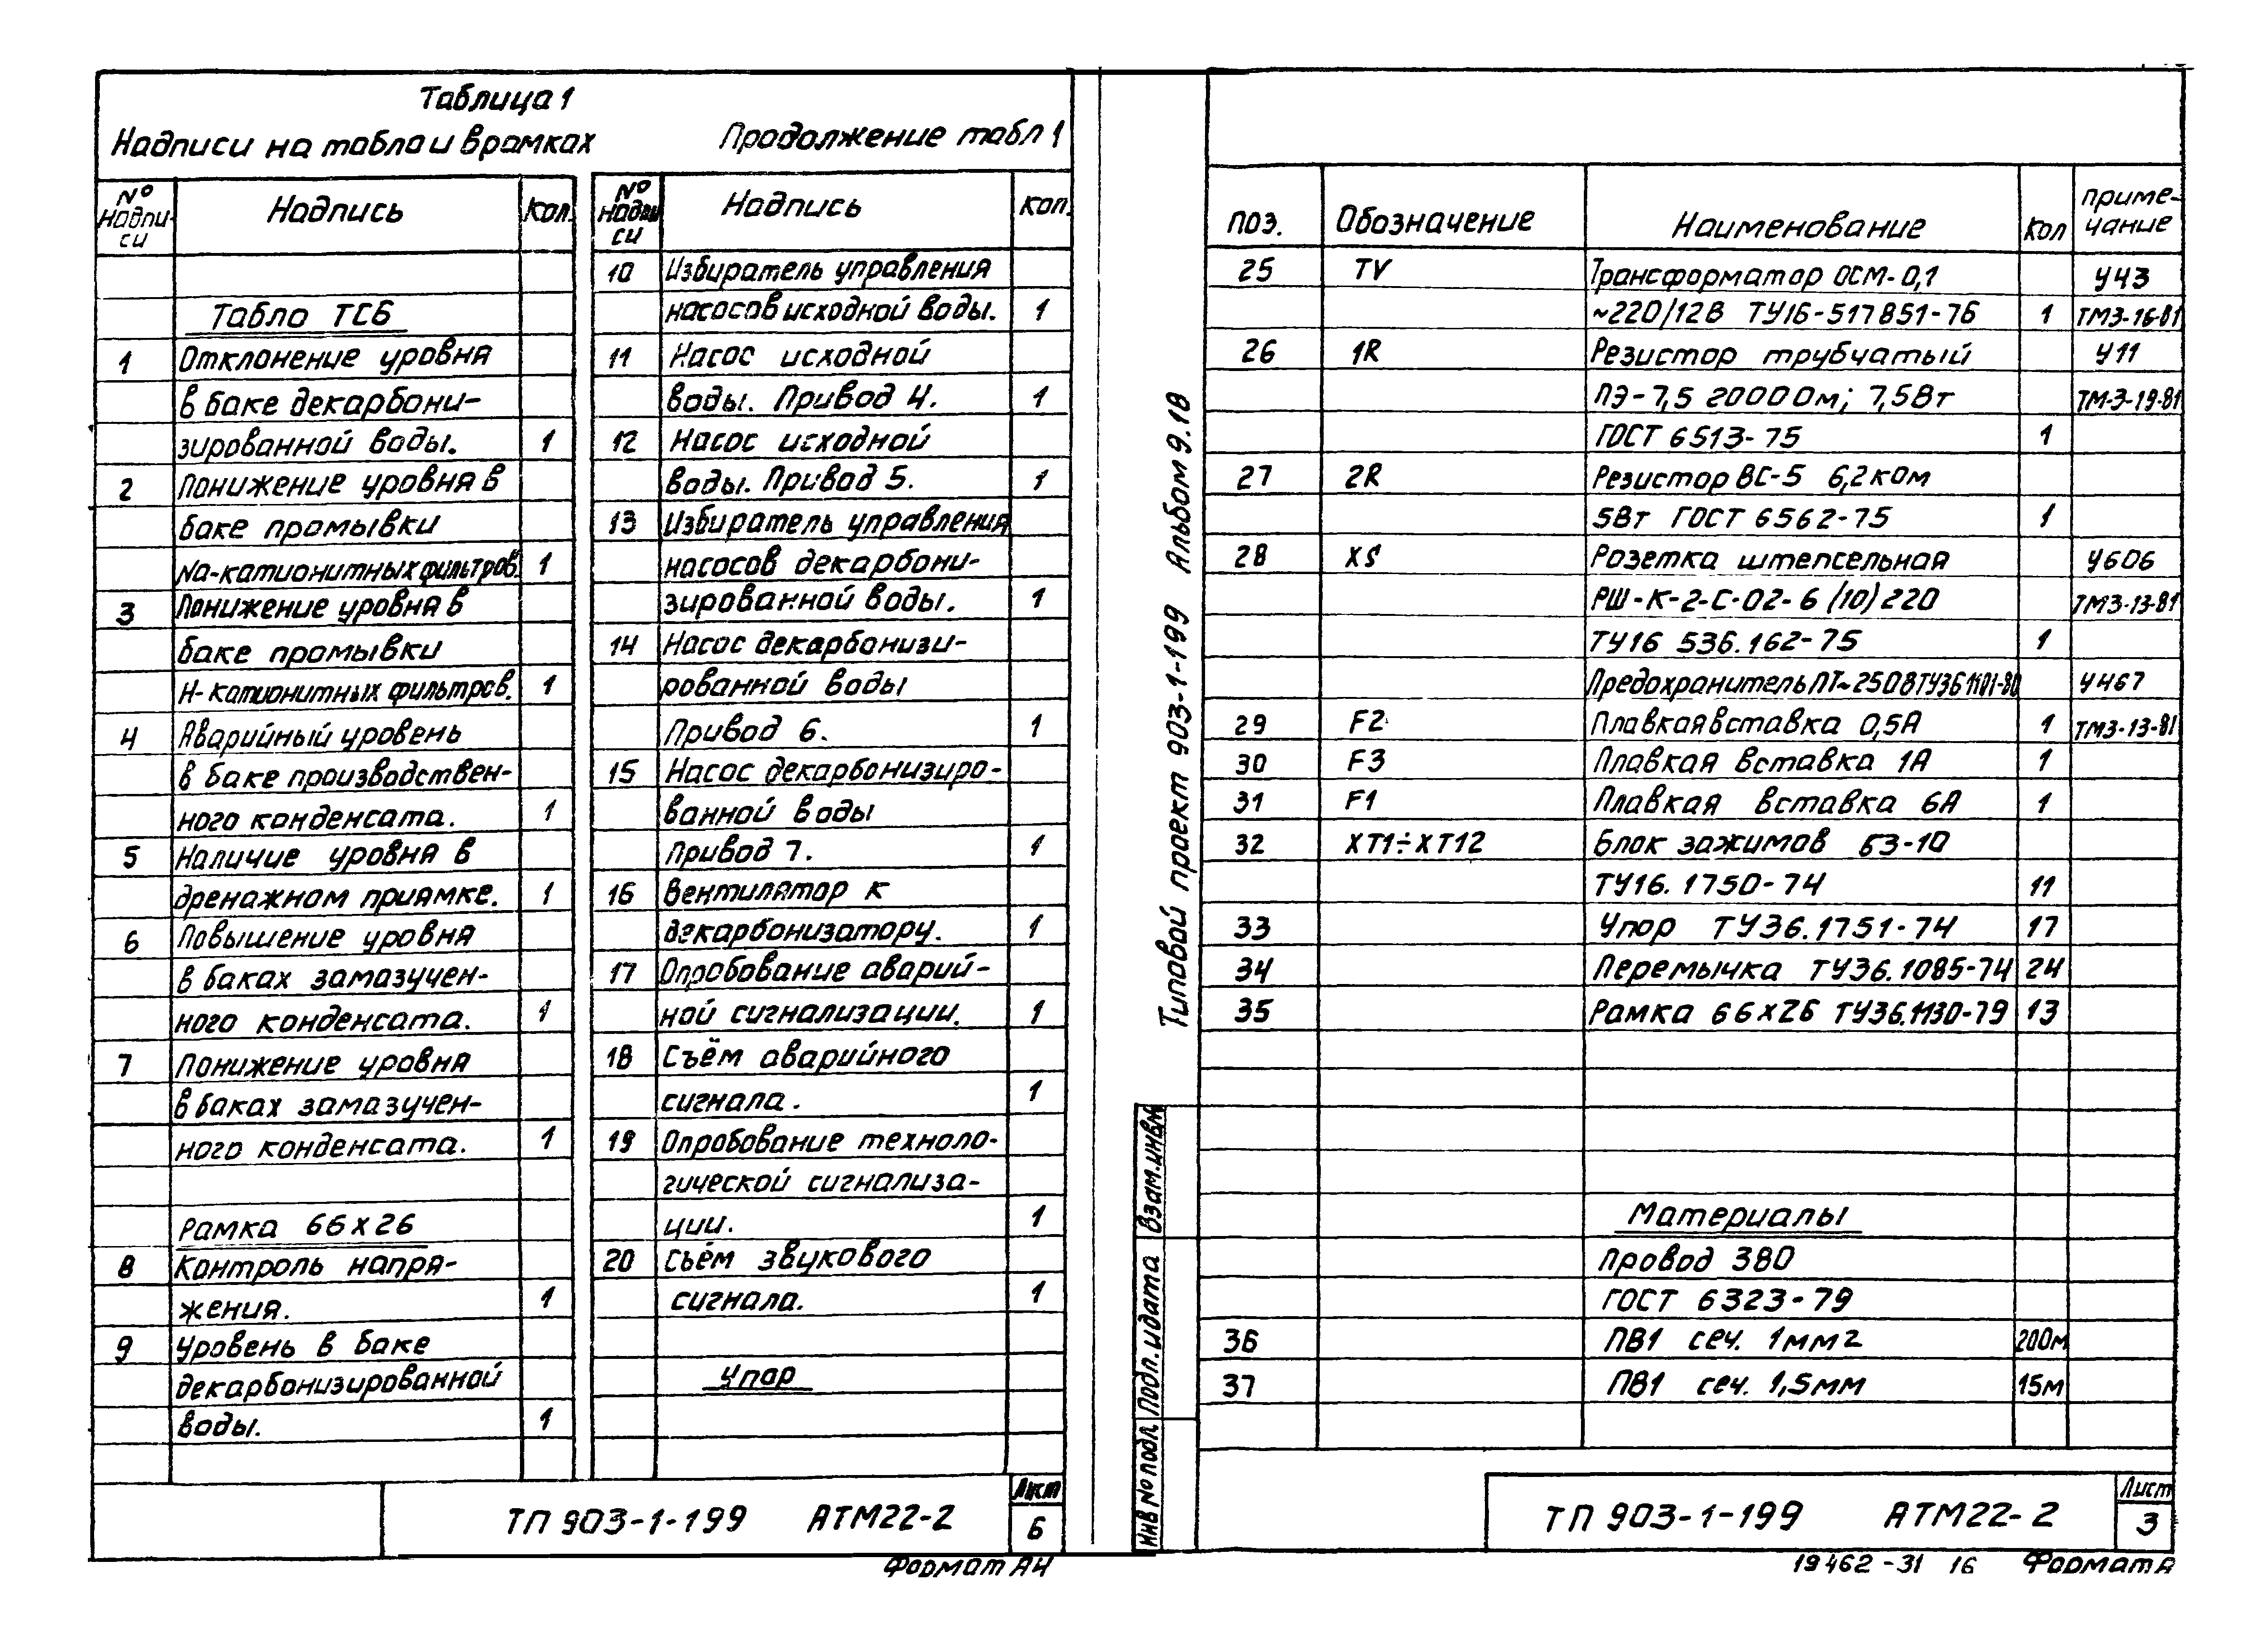 Таблица 1
Надписи на табло и в рамках
№ надпи-си Надпись Кол.
Табло ТСБ
1 Отклонение уровня
в баке декарбони-
зированной воды. 1
2 Понижение уровня в
баке промывки
Na-катионитных фильтров. 1
3 Понижение уровня в
баке промывки
Н-катионитных фильтров. 1
4 Аварийный уровень
в баке производствен-
ного конденсата. 1
5 Наличие уровня в
дренажном приямке. 1
6 Повышение уровня
в баках замазучен-
ного конденсата. 1
7 Понижение уровня
в баках замазучен-
ного конденсата. 1
Рамка 66х26
8 Контроль напря-
жения. 1
9 Уровень в баке
декарбонизированной
воды. 1
Продолжение табл 1
№ надписи Надпись Кол.
10 Избиратель управления
насосов исходной воды. 1
11 Насос исходной
воды. Привод 4. 1
12 Насос исходной
воды. Привод 5. 1
13 Избиратель управления
насосов декарбони-
зированной воды. 1
14 Насос декарбонизи-
рованной воды
Привод 6. 1
15 Насос декарбонизиро-
ванной воды
Привод 7. 1
16 Вентилятор к
декарбонизатору. 1
17 Опробование аварий-
ной сигнализации. 1
18 Съём аварийного
сигнала. 1
19 Опробование техноло-
гической сигнализа-
ции. 1
20 Съём звукового
сигнала. 1
Упор
ТП 903-1-199 АТМ22-2
Лист
6
Формат А4
Типовой проект 903-1-199 Альбом 9.18
Взам.инв.№
Подп. и дата
Инв № подл.
Поз. Обозначение Наименование Кол Приме-чание
25 TV Трансформатор ОСМ-0,1 У43
~220/12В ТУ16-517851-76 1 ТМ3-16-81
26 1R Резистор трубчатый У11
ПЭ-7,5 2000 Ом; 7,5Вт ТМ-3-19-81
ГОСТ 6513-75 1
27 2R Резистор ВС-5 6,2 ком
5Вт ГОСТ 6562-75 1
28 XS Розетка штепсельная У606
РШ-К-2-С-02-6 /10/ 220 ТМ3-13-81
ТУ16 536.162-75 1
Предохранитель ПТ~250В ТУ36 1101-80 У467
29 F2 Плавкая вставка 0,5А 1 ТМ3-13-81
30 F3 Плавкая вставка 1А 1
31 F1 Плавкая вставка 6А 1
32 ХТ1÷ХТ12 Блок зажимов БЗ-10
ТУ16. 1750-74 11
33 Упор ТУ36.1751-74 17
34 Перемычка ТУ36.1085-74 24
35 Рамка 66х26 ТУ36.1130-79 13
Материалы
Провод 380
ГОСТ 6323-79
36 ПВ1 сеч. 1мм2 200м
37 ПВ1 сеч. 1,5мм 15м
ТП 903-1-199 АТМ22-2
Лист
3
19462-31 16 Формат А